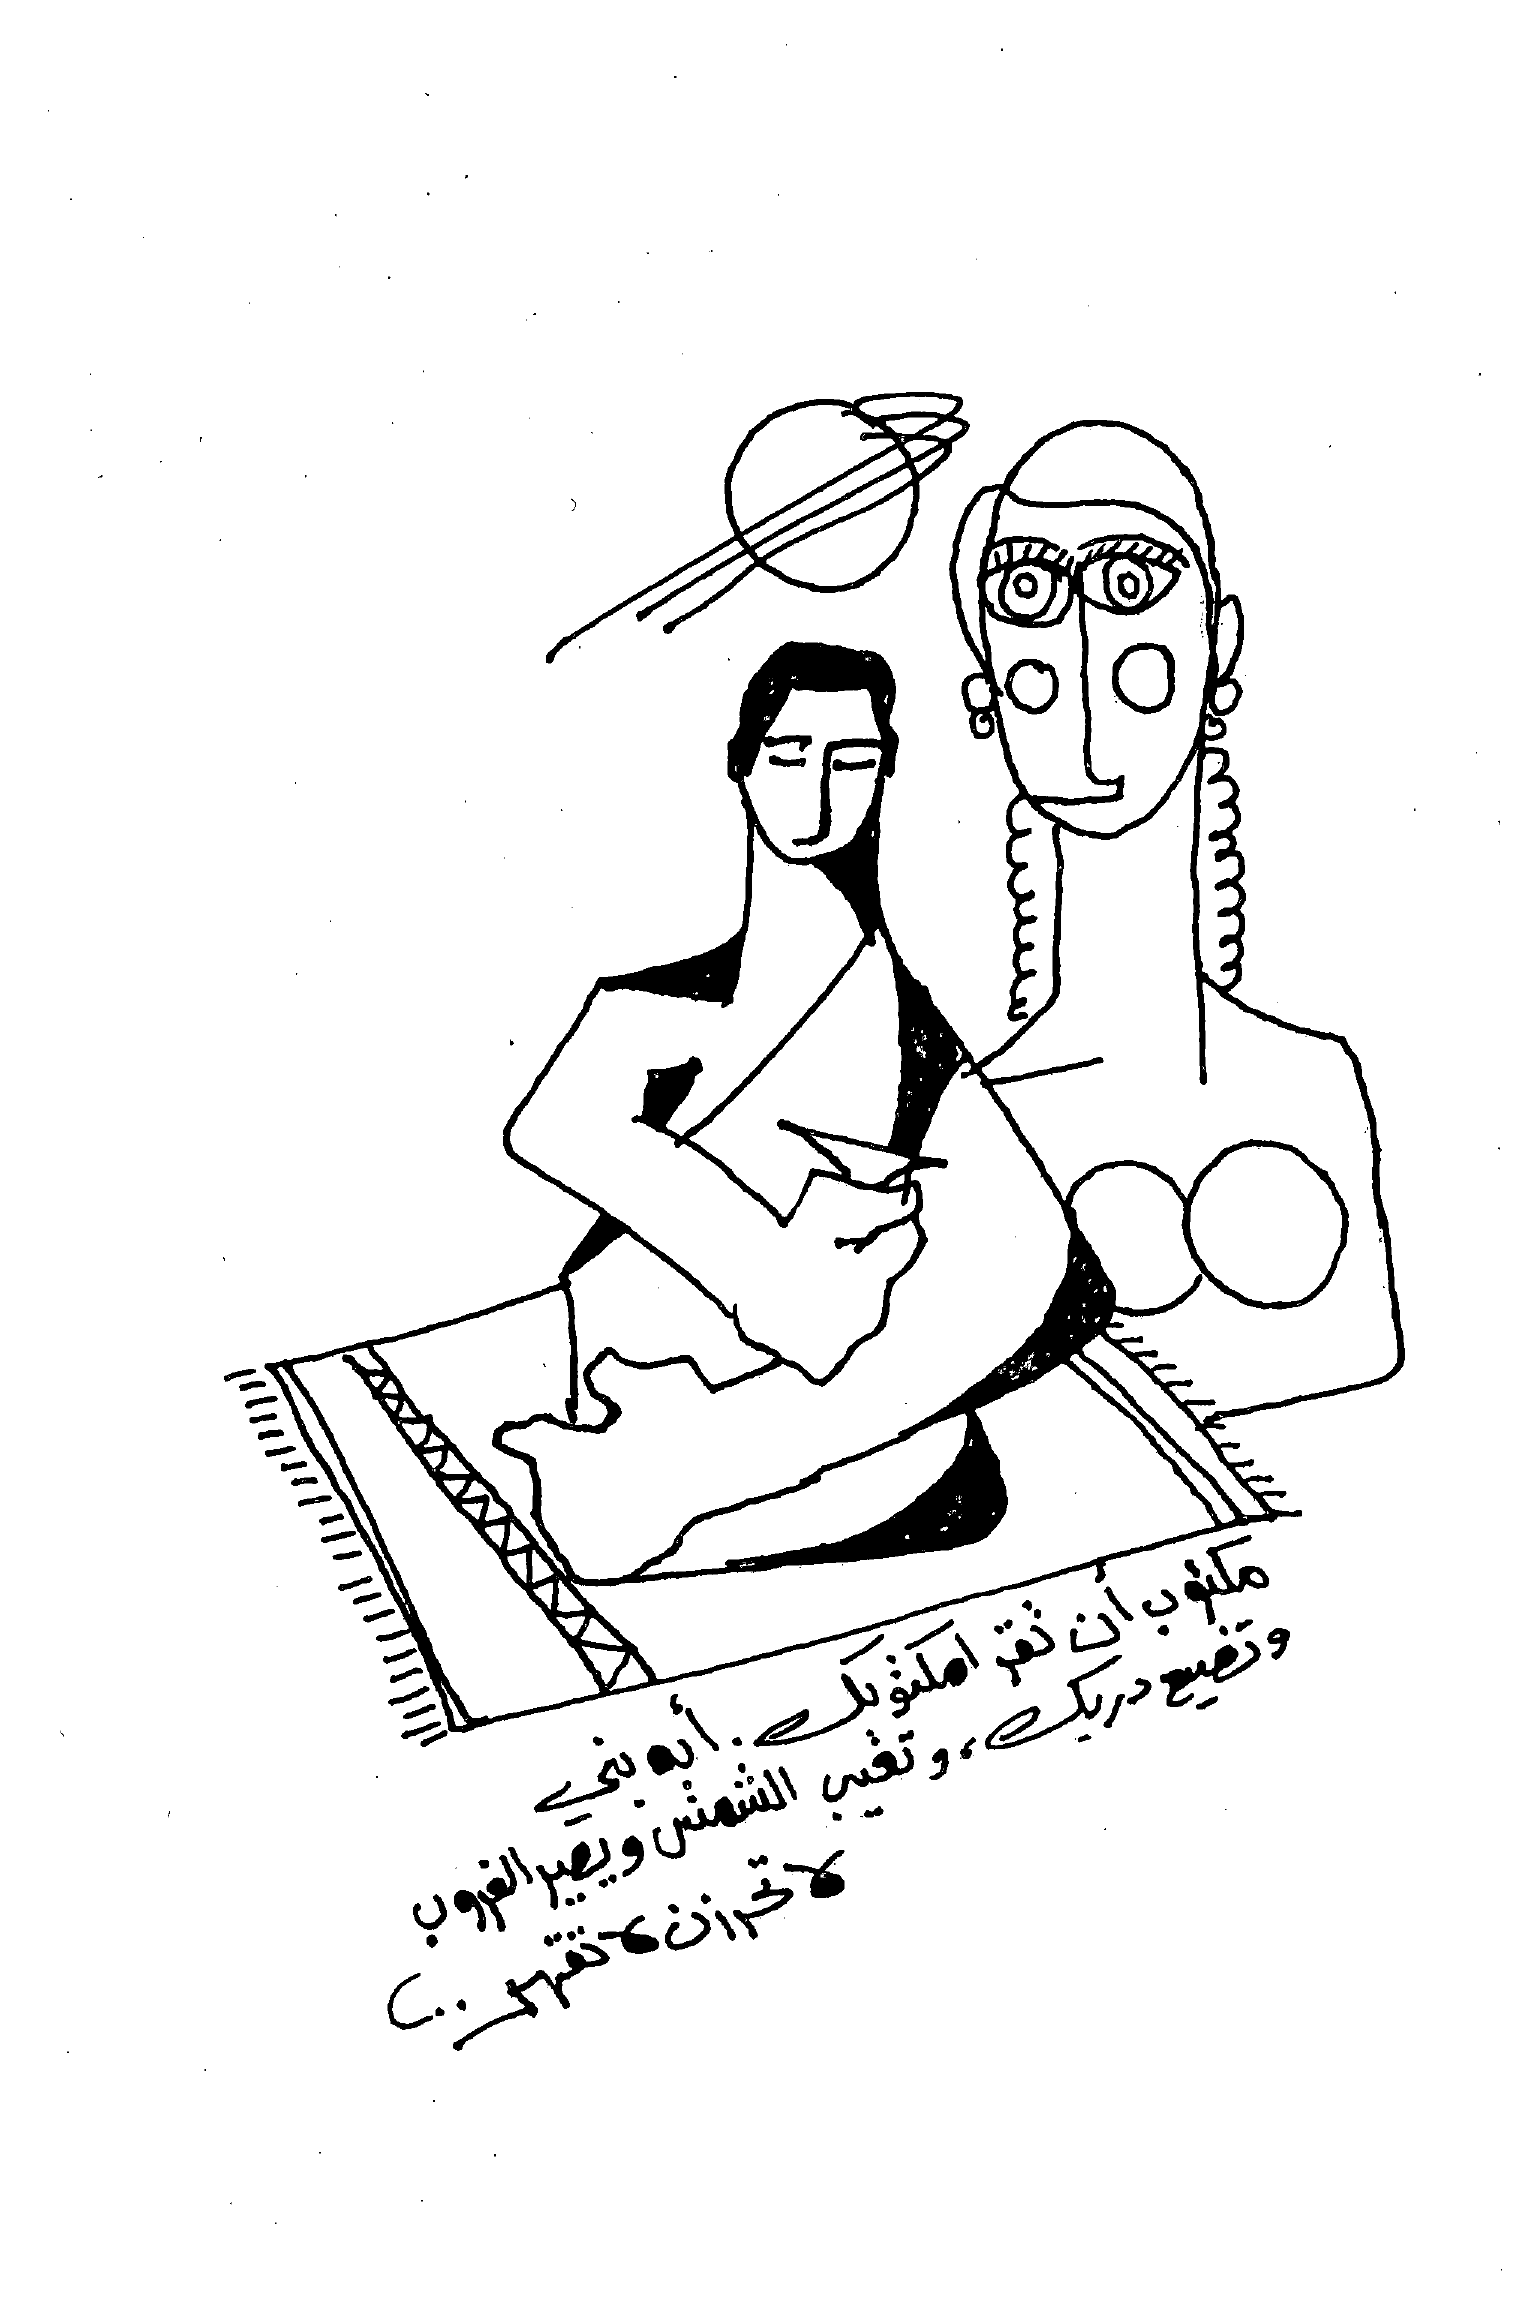 مكتوب أن تقر امكتوبك . أيه بني
وتضيع دربك ، و تغيب الشمش ويصير الغروب
لا تحزن لا تقهر ..